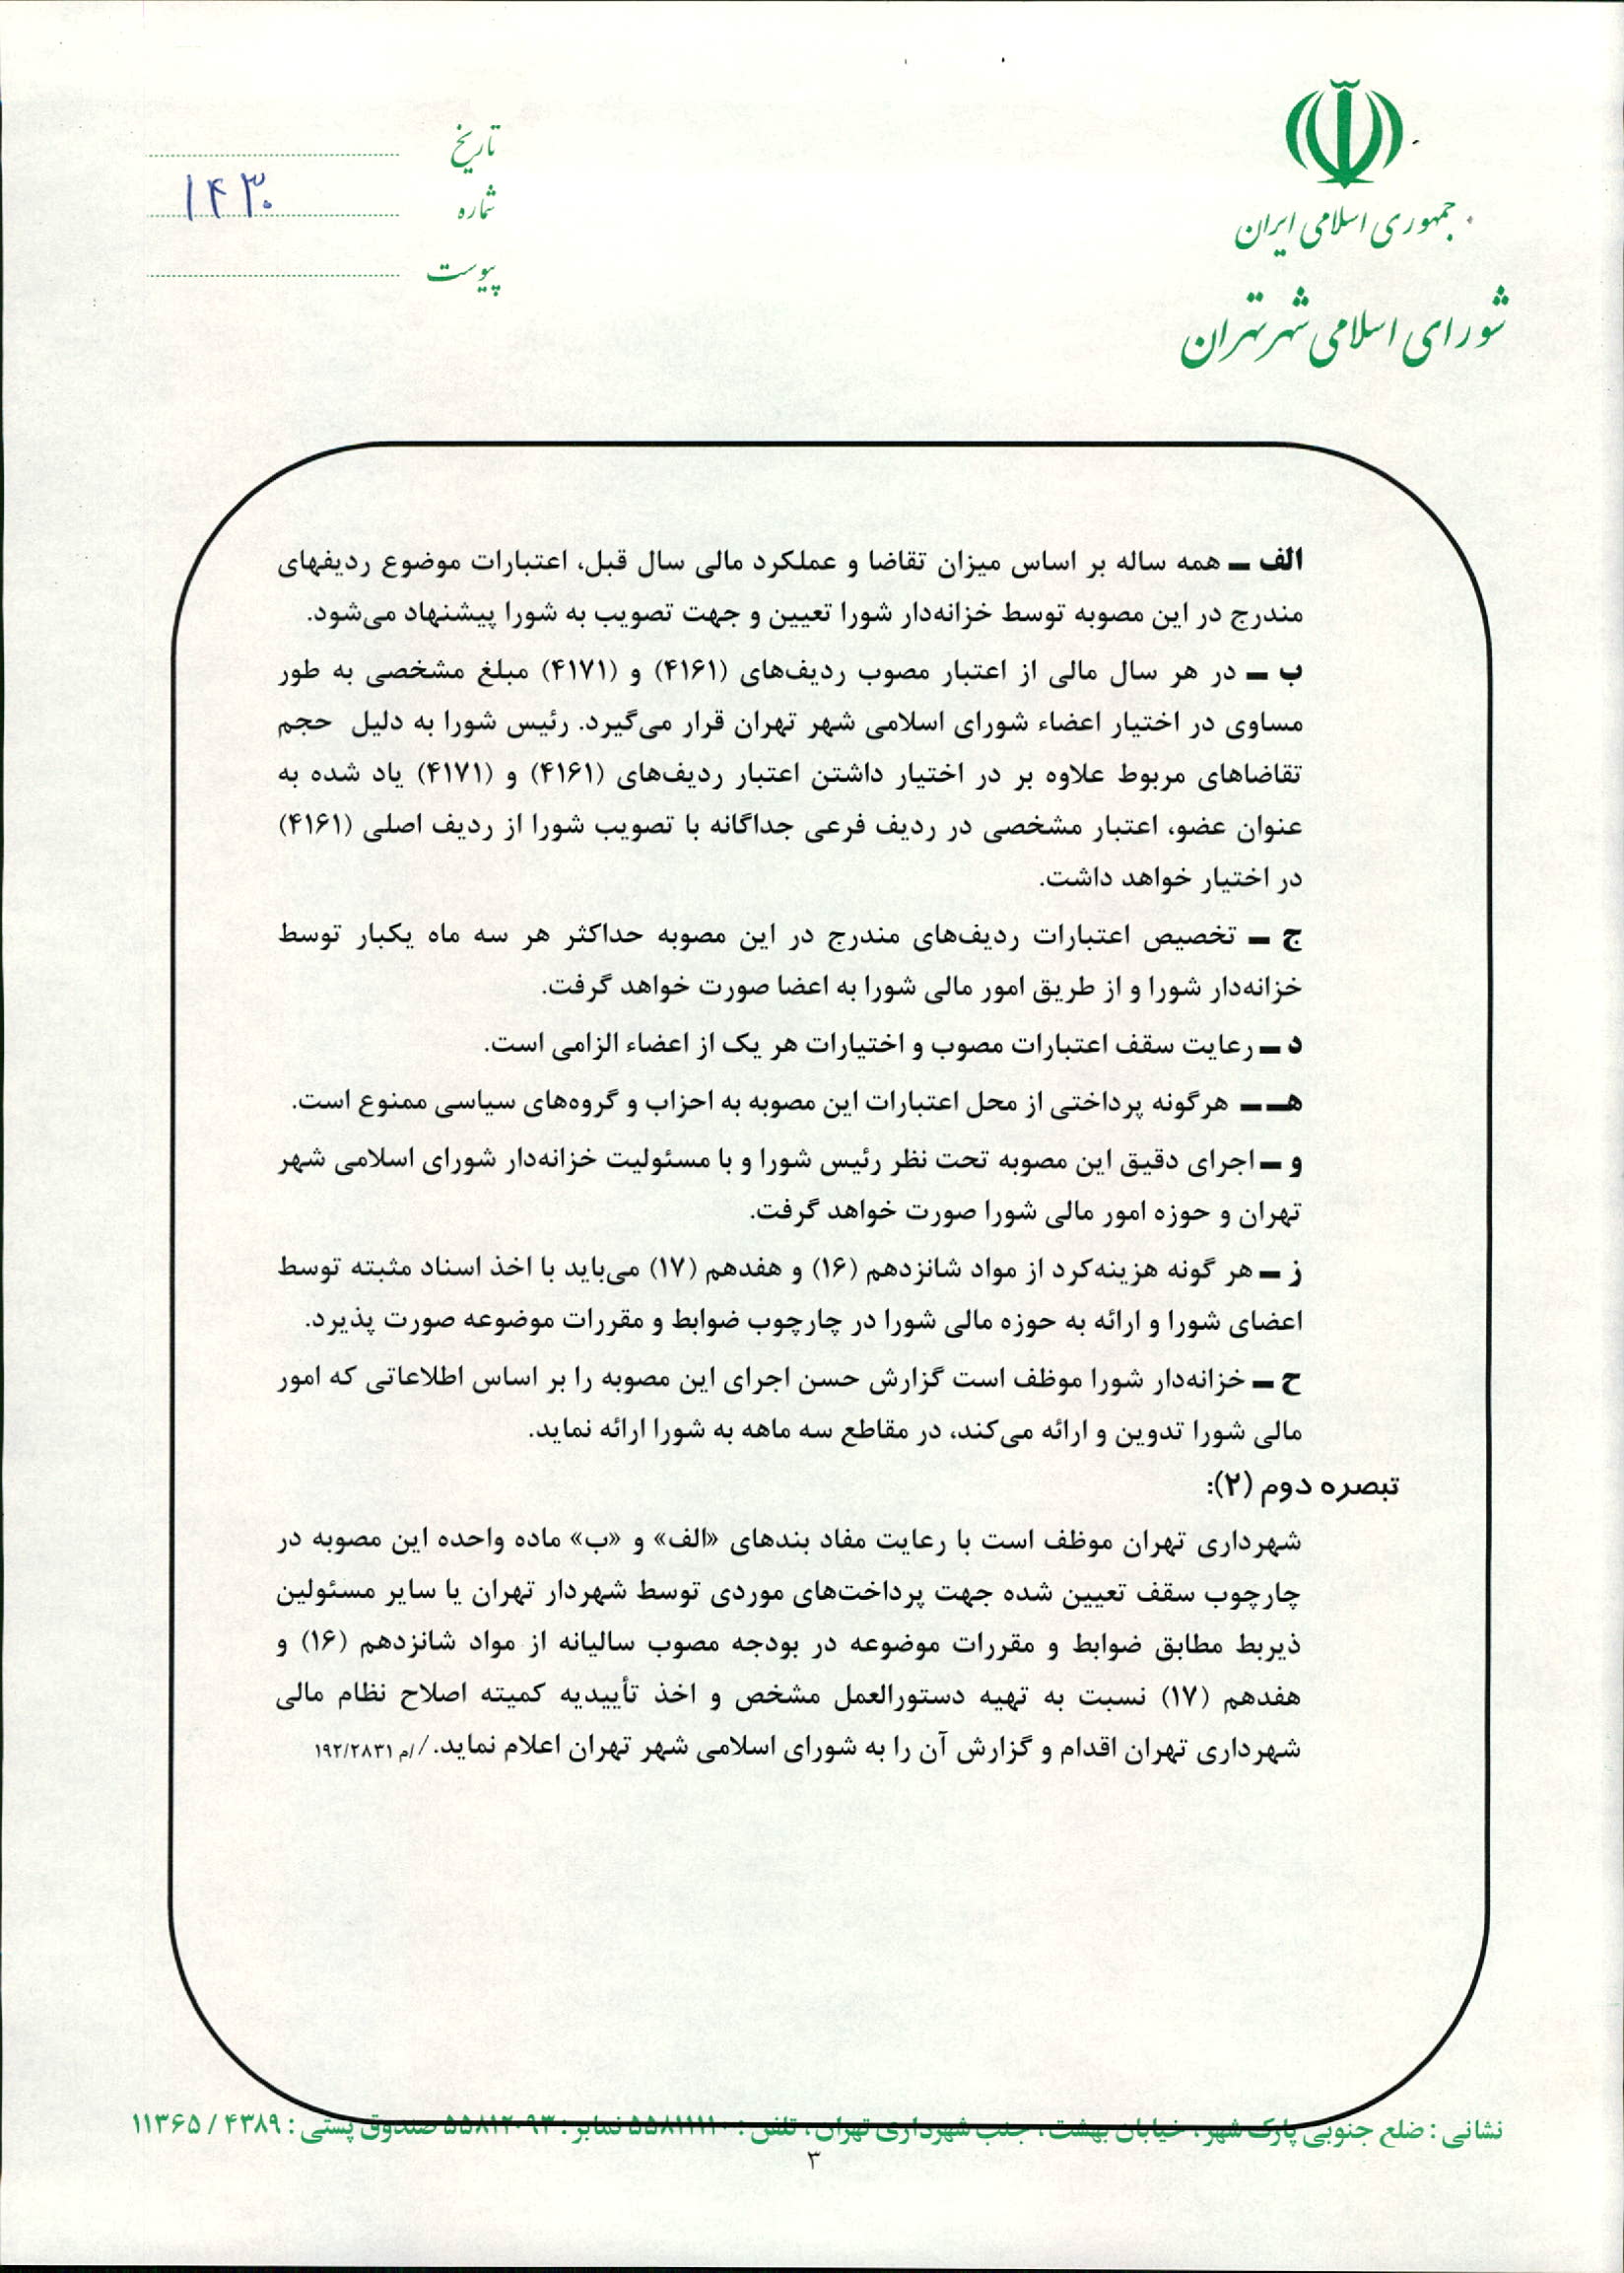 جمهوری اسلامی ایران
شورای اسلامی شهر تهران
تاریخ
شماره ۱۴۳۰
پیوست
الف ـ همه ساله بر اساس میزان تقاضا و عملکرد مالی سال قبل، اعتبارات موضوع ردیفهای
مندرج در این مصوبه توسط خزانه‌دار شورا تعیین و جهت تصویب به شورا پیشنهاد می‌شود.
ب ـ در هر سال مالی از اعتبار مصوب ردیف‌های (۴۱۶۱) و (۴۱۷۱) مبلغ مشخصی به طور
مساوی در اختیار اعضاء شورای اسلامی شهر تهران قرار می‌گیرد. رئیس شورا به دلیل حجم
تقاضاهای مربوط علاوه بر در اختیار داشتن اعتبار ردیف‌های (۴۱۶۱) و (۴۱۷۱) یاد شده به
عنوان عضو، اعتبار مشخصی در ردیف فرعی جداگانه با تصویب شورا از ردیف اصلی (۴۱۶۱)
در اختیار خواهد داشت.
ج ـ تخصیص اعتبارات ردیف‌های مندرج در این مصوبه حداکثر هر سه ماه یکبار توسط
خزانه‌دار شورا و از طریق امور مالی شورا به اعضا صورت خواهد گرفت.
د ـ رعایت سقف اعتبارات مصوب و اختیارات هر یک از اعضاء الزامی است.
هـ ـ هرگونه پرداختی از محل اعتبارات این مصوبه به احزاب و گروه‌های سیاسی ممنوع است.
و ـ اجرای دقیق این مصوبه تحت نظر رئیس شورا و با مسئولیت خزانه‌دار شورای اسلامی شهر
تهران و حوزه امور مالی شورا صورت خواهد گرفت.
ز ـ هر گونه هزینه‌کرد از مواد شانزدهم (۱۶) و هفدهم (۱۷) می‌باید با اخذ اسناد مثبته توسط
اعضای شورا و ارائه به حوزه مالی شورا در چارچوب ضوابط و مقررات موضوعه صورت پذیرد.
ح ـ خزانه‌دار شورا موظف است گزارش حسن اجرای این مصوبه را بر اساس اطلاعاتی که امور
مالی شورا تدوین و ارائه می‌کند، در مقاطع سه ماهه به شورا ارائه نماید.
تبصره دوم (۲):
شهرداری تهران موظف است با رعایت مفاد بندهای «الف» و «ب» ماده واحده این مصوبه در
چارچوب سقف تعیین شده جهت پرداخت‌های موردی توسط شهردار تهران یا سایر مسئولین
ذیربط مطابق ضوابط و مقررات موضوعه در بودجه مصوب سالیانه از مواد شانزدهم (۱۶) و
هفدهم (۱۷) نسبت به تهیه دستورالعمل مشخص و اخذ تأییدیه کمیته اصلاح نظام مالی
شهرداری تهران اقدام و گزارش آن را به شورای اسلامی شهر تهران اعلام نماید.//م ۱۹۲/۲۸۳۱
نشانی : ضلع جنوبی پارک شهر، خیابان بهشت، جنب شهرداری تهران، تلفن : ۵۵۸۱۱۱۱۰ نمابر : ۵۵۸۱۲۰۹۳ صندوق پستی : ۴۳۸۹ / ۱۱۳۶۵
۳